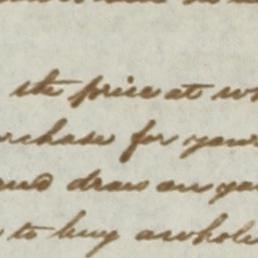 the price at wh
rchase for your
and draw on yo
to buy a whole